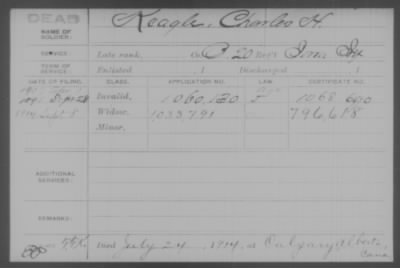 DEAD
NAME OF SOLDIER: Keagle, Charles H.
SERVICE: Late rank, Co B. 20 Reg't Iowa Inf
TERM OF SERVICE: Enlisted , 1 Discharged , 1
DATE OF FILING. CLASS. APPLICATION NO. LAW. CERTIFICATE NO.
1891 Sept 28 Invalid, 1060,130 1068
1914 Sept 8 Widow, 1033,791 796,618
Minor,
ADDITIONAL SERVICES:
REMARKS:
Died July 24, 1914, at Calgary Alberta, Cana